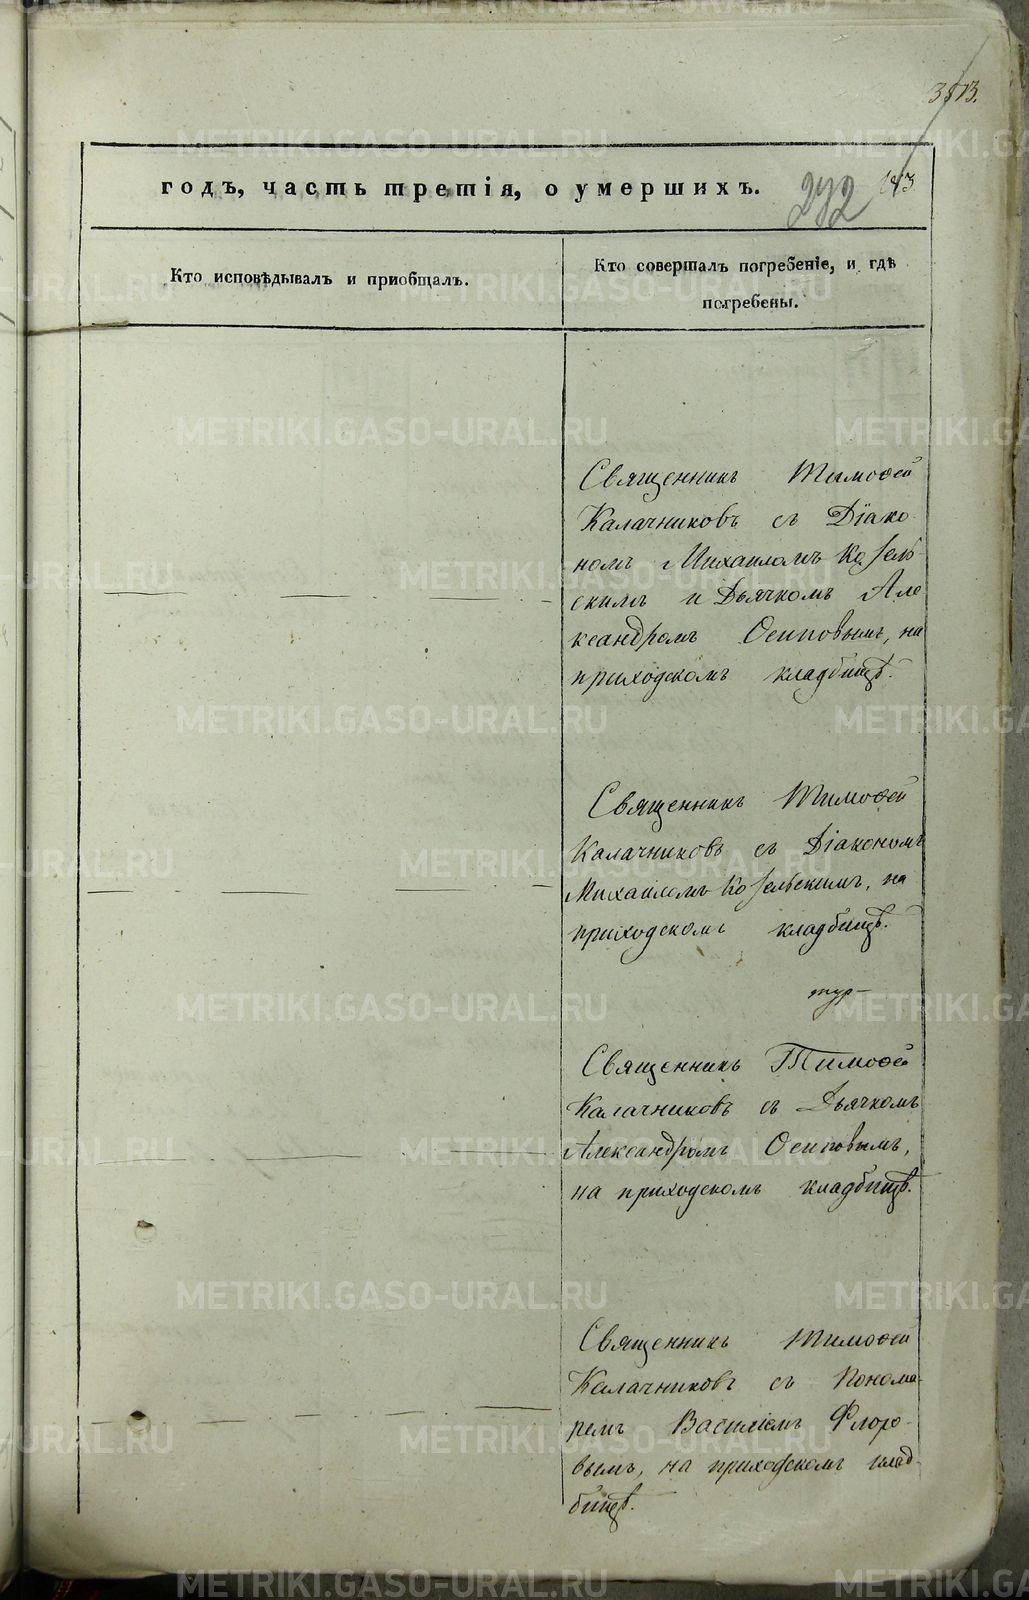 годъ, часть третія, о умершихъ.
292
Кто исповѣдывалъ и пріобщалъ.
Кто совершалъ погребеніе, и гдѣ
погребены.
Священникъ Тимофей
Калачниковъ съ Діако-
номъ Михаиломъ Козель-
скимъ и Дьячкомъ Але
ксандромъ Осиповымъ, на
приходскомъ кладбищѣ.
Священникъ Тимофей
Калачниковъ съ Діакономъ
Михаиломъ Козельскимъ, на
приходскомъ кладбищѣ.
Священникъ Тимофей
Калачниковъ съ Дьячкомъ
Александромъ Осиповымъ,
на приходскомъ кладбищѣ.
Священникъ Тимофей
Калачниковъ съ Понома-
ремъ Василіемъ Флоро-
вымъ, на приходскомъ клад-
бищѣ.
METRIKI.GASO-URAL.RU